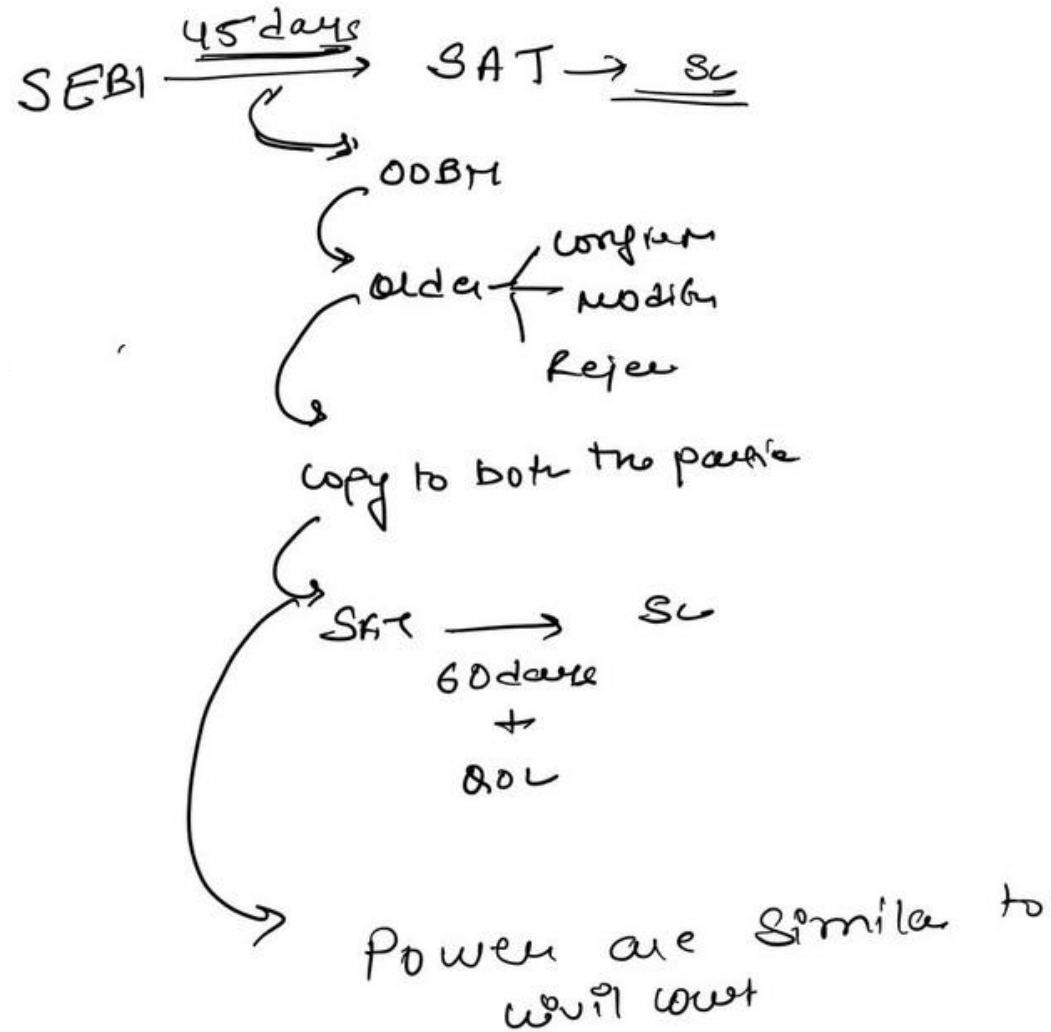 45 days
SEBI → SAT → SC
OOBH
Order
Confirm
Modify
Reject
Copy to both the parties
SAT → SC
60 days
+
QOL
Power are similar to
civil court